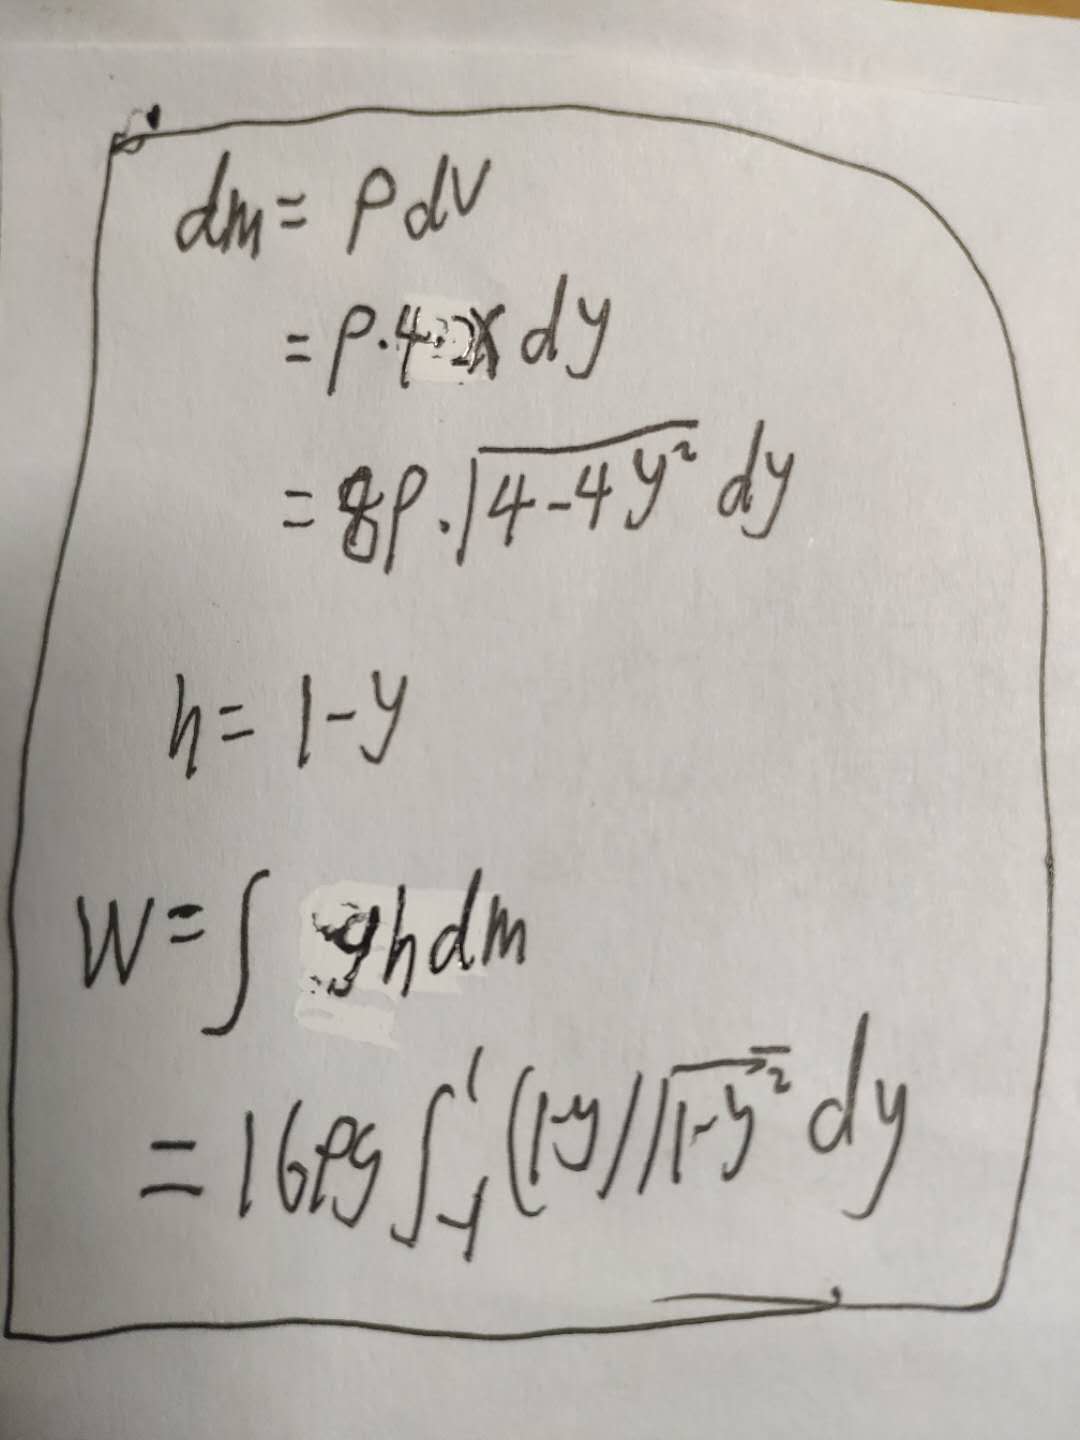 dm = ρ dV
= ρ·4·2x dy
= 8ρ·√(4-4y²) dy
h = 1-y
W = ∫ gh dm
= 16ρg ∫₋₁¹ (1-y) √(1-y²) dy